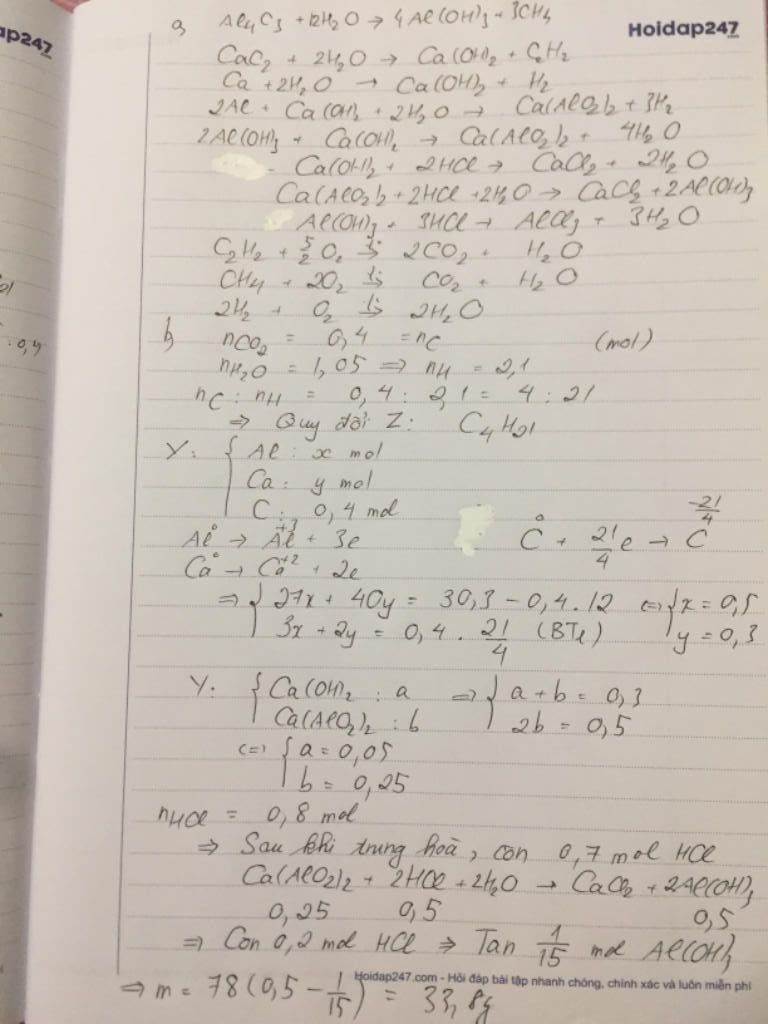 ap247
Hoidap247
a, Al₄C₃ + 12H₂O → 4Al(OH)₃ + 3CH₄
CaC₂ + 2H₂O → Ca(OH)₂ + C₂H₂
Ca + 2H₂O → Ca(OH)₂ + H₂
2Al + Ca(OH)₂ + 2H₂O → Ca(AlO₂)₂ + 3H₂
2Al(OH)₃ + Ca(OH)₂ → Ca(AlO₂)₂ + 4H₂O
Ca(OH)₂ + 2HCl → CaCl₂ + 2H₂O
Ca(AlO₂)₂ + 2HCl + 2H₂O → CaCl₂ + 2Al(OH)₃
Al(OH)₃ + 3HCl → AlCl₃ + 3H₂O
C₂H₂ + 5/2 O₂ →(t°) 2CO₂ + H₂O
CH₄ + 2O₂ →(t°) CO₂ + H₂O
2H₂ + O₂ →(t°) 2H₂O
b, nCO₂ = 0,4 = nC (mol)
: 0,4
nH₂O = 1,05 => nH = 2,1
nC : nH = 0,4 : 2,1 = 4 : 21
=> Quy đổi Z: C₄H₂₁
Y: { Al: x mol
Ca: y mol
C: 0,4 mol
Al⁰ → Al⁺³ + 3e C⁰ + 21/4 e → C^(-21/4)
Ca⁰ → Ca⁺² + 2e
=> { 27x + 40y = 30,3 - 0,4.12 <=> { x = 0,5
3x + 2y = 0,4 . 21/4 (BTe) y = 0,3
Y: { Ca(OH)₂ : a => { a + b = 0,3
Ca(AlO₂)₂ : b 2b = 0,5
<=> { a = 0,05
b = 0,25
nHCl = 0,8 mol
=> Sau khi trung hoà, còn 0,7 mol HCl
Ca(AlO₂)₂ + 2HCl + 2H₂O → CaCl₂ + 2Al(OH)₃
0,25 0,5 0,5
=> Còn 0,2 mol HCl => Tan 1/15 mol Al(OH)₃
Hoidap247.com - Hỏi đáp bài tập nhanh chóng, chính xác và luôn miễn phí
=> m = 78(0,5 - 1/15) = 33,8g